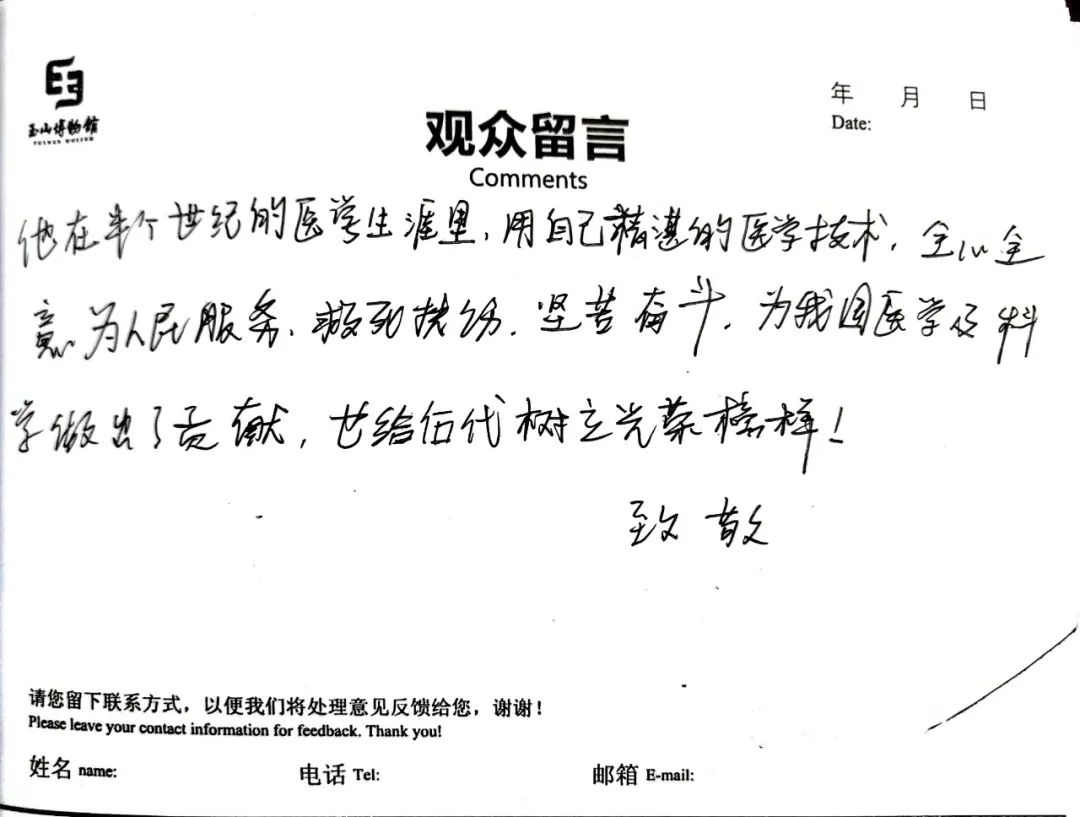 玉山博物馆
YUSHAN MUSEUM
年 月 日
Date:
观众留言
Comments
他在半个世纪的医学生涯里,用自己精湛的医学技术,全心全
意为人民服务、救死扶伤,坚苦奋斗,为我国医学及科
学做出了贡献,也给后代树立光荣榜样!
致敬
请您留下联系方式,以便我们将处理意见反馈给您,谢谢!
Please leave your contact information for feedback. Thank you!
姓名 name: 电话 Tel: 邮箱 E-mail: